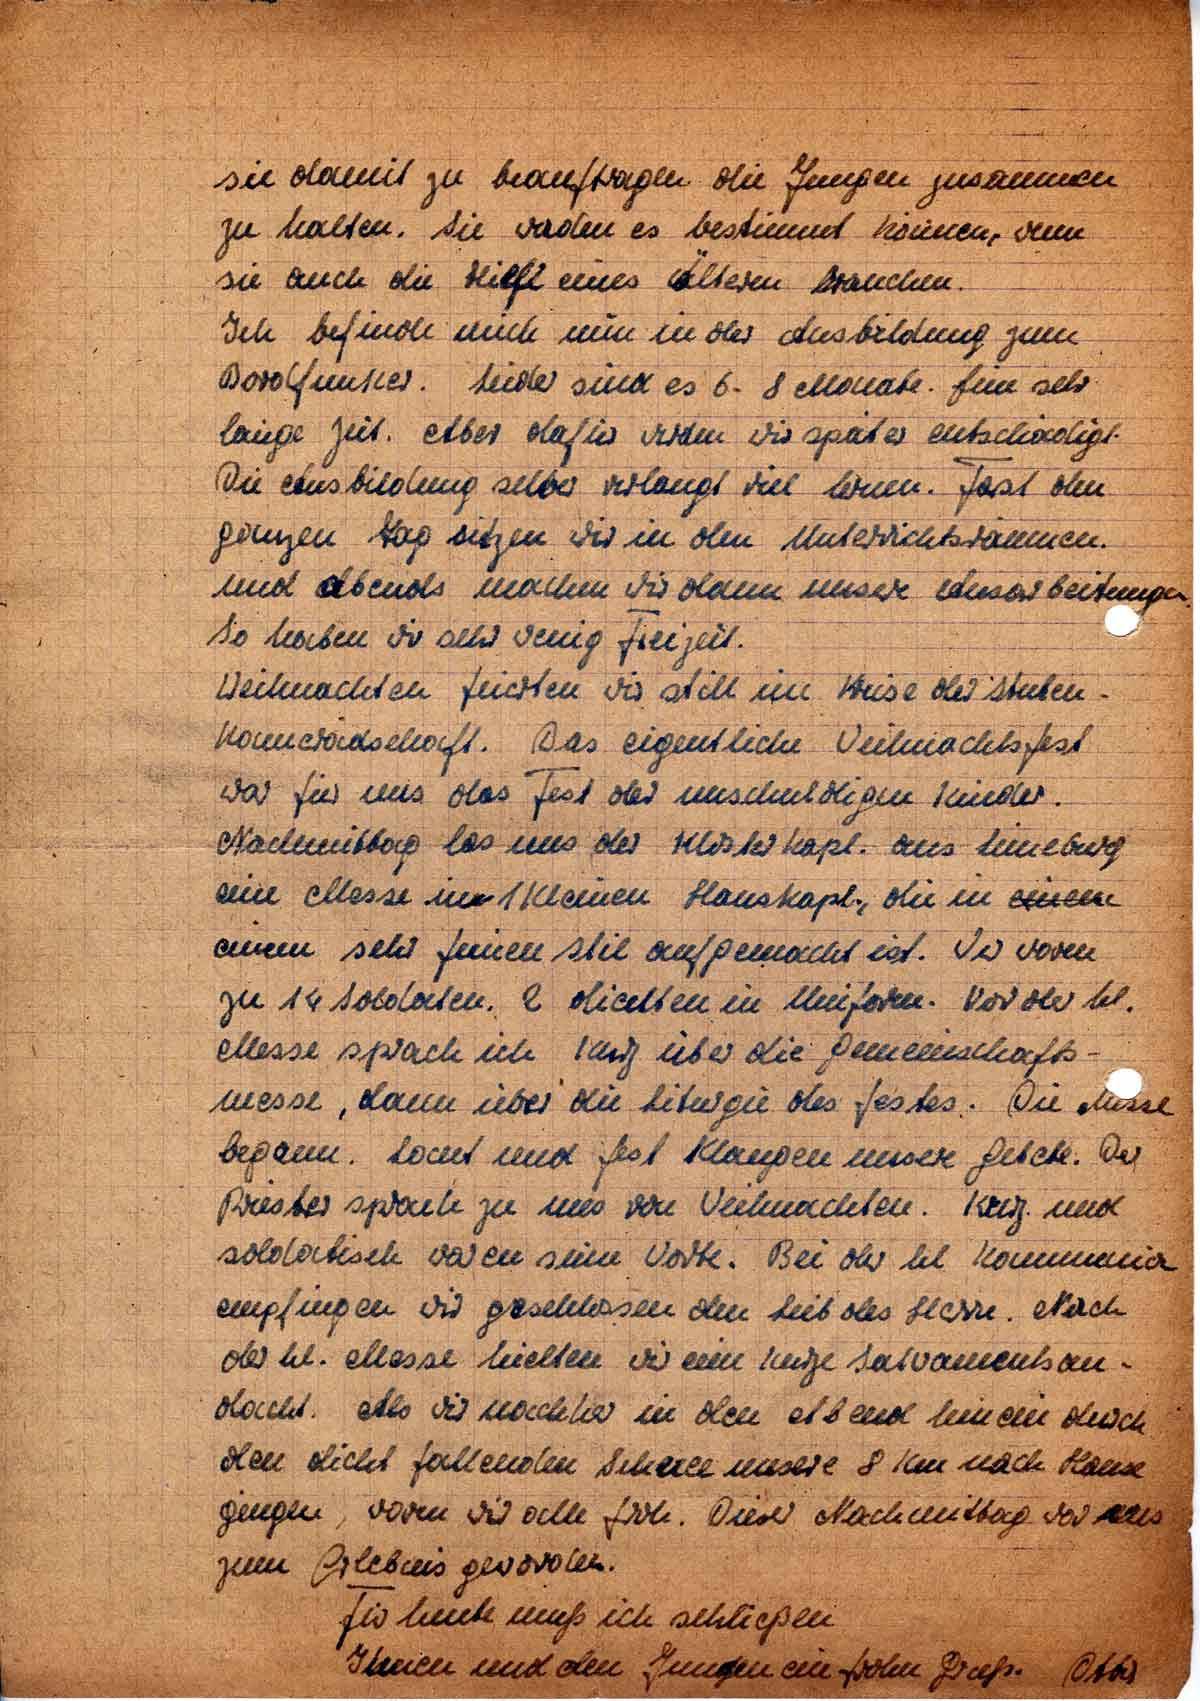 sie damit zu beauftragen die Jungen zusammen
zu halten. Sie werden es bestimmt können, wenn
sie auch die Hilfe eines Ältern brauchen.
Ich befinde mich nun in der Ausbildung zum
Bordfunker. Leider sind es 6-8 Monate. Eine sehr
lange Zeit. Aber dafür werden wir später entschädigt.
Die Ausbildung selber verlangt viel lernen. Fast den
ganzen Tag sitzen wir in den Unterrichtsräumen.
und abends machen wir dann unsere Ausarbeitungen.
So haben wir sehr wenig Freizeit.
Weihnachten feierten wir still im Kreise der Stuben-
kameradschaft. Das eigentliche Weihnachtsfest
war für uns das Fest der unschuldigen Kinder.
Nachmittag las uns der Klosterkapl. aus Lüneburg
eine Messe in 1 kleinen Hauskapl., die in einem
einem sehr feinen Stil aufgemacht ist. Wir waren
zu 14 Soldaten. 2 dienten in Uniform. Vor der hl.
Messe sprach ich kurz über die Gemeinschafts-
messe, dann über die Liturgie des Festes. Die Messe
begann. Laut und fest klangen unsere Gebete. Der
Priester sprach zu uns von Weihnachten. Kurz und
soldatisch waren seine Worte. Bei der hl Kommunion
empfingen wir geschlossen den Leib des Herrn. Nach
der hl. Messe hielten wir eine kurze Sakramentsan-
dacht. Als wir nachher in den Abend hinein durch
den dicht fallenden Schnee unsere 8 km nach Hause
gingen, waren wir alle froh. Dieser Nachmittag war uns
zum Erlebnis geworden.
Für heute muß ich schließen
Ihnen und den Jungen ein frohen Gruß.